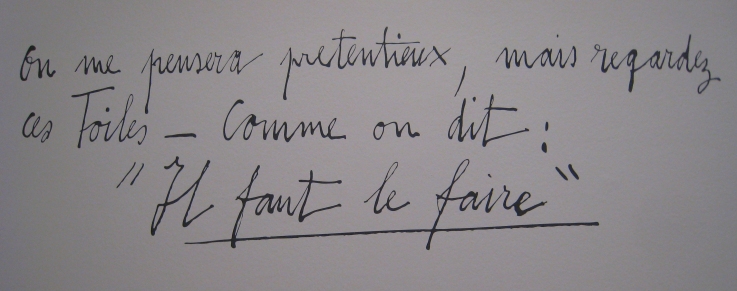 On me pensera pretentieux, mais regardez
ces Toiles — Comme on dit :
"Il faut le faire"